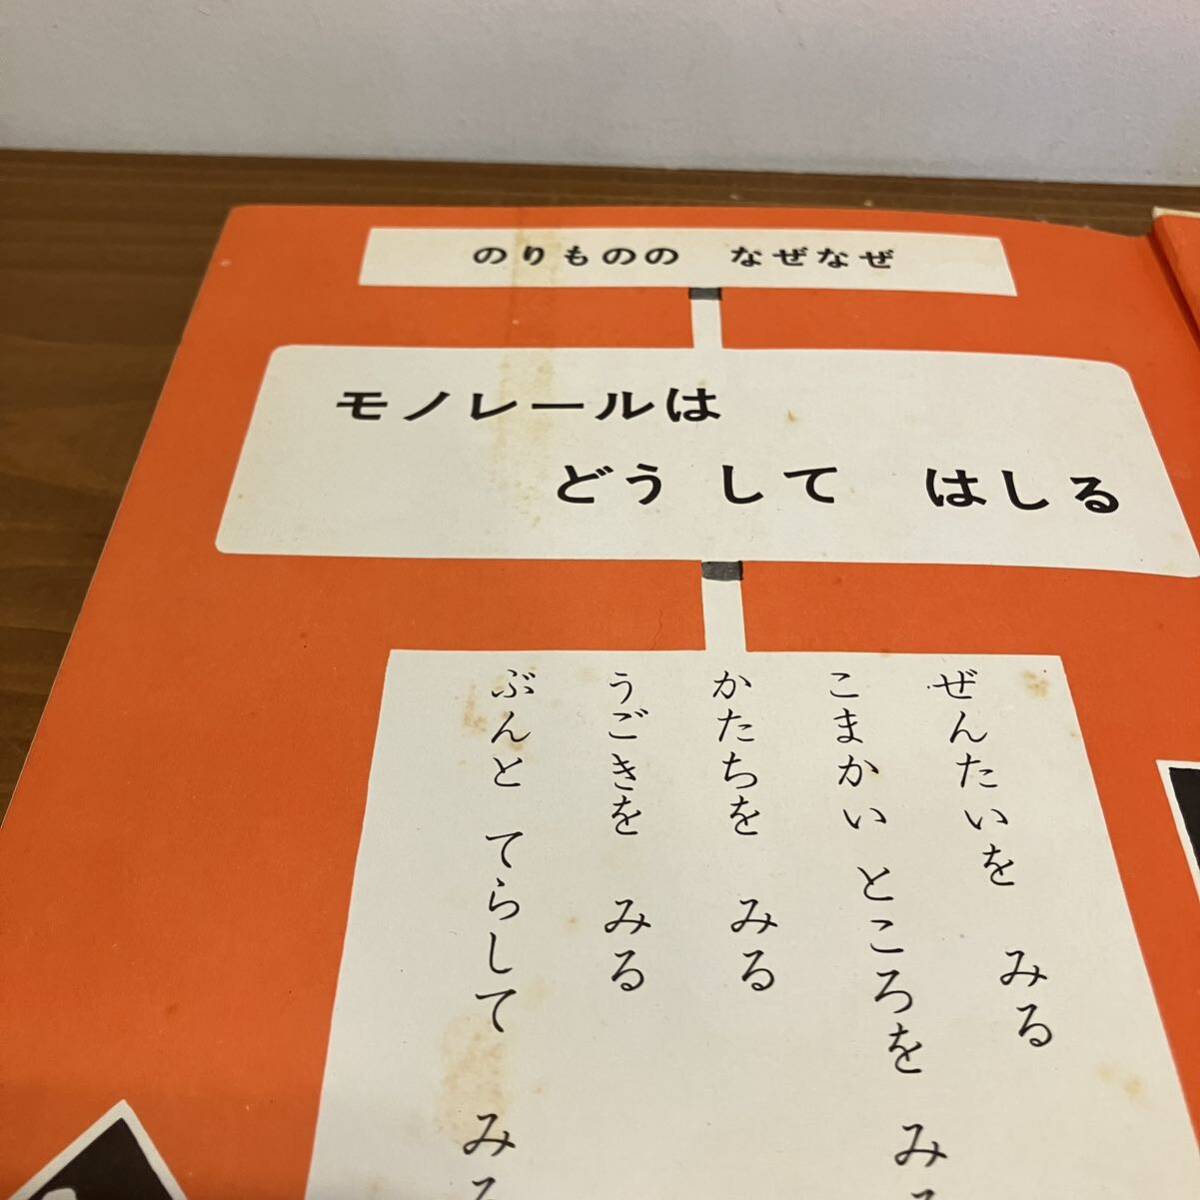 のりものの なぜなぜ
モノレールは
どうして はしる
ぜんたいを みる
こまかい ところを みる
かたちを みる
うごきを みる
ぶんと てらして みる